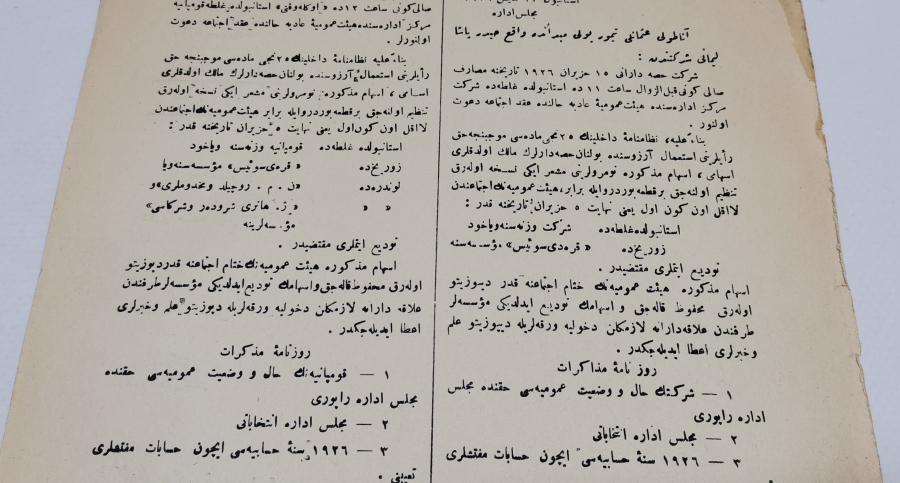 استانبول
مجلس اداره
آناطولی عثمانی تیمور یولی میداننده واقع حیدر پاشا
لیمانی شرکتندن :
شرکت حصه دارانی ١٥ حزیران ١٩٢٦ تاریخنه مصارف
صالی کونی قبل الزوال ساعت ١١ ده استانبولده غلطه ده شرکت
مرکز اداره سنده هیئت عمومیهٔ عادیه حالنده عقد اجتماعه دعوت
اولنور .
بناءً علیه، نظامنامهٔ داخلینك ٢٥ نجی ماده سی موجبنجه حق
رأیلرینی استعمال آرزوسنده بولنان حصه دارلرك مالك اولدقلری
اسهامی ، اسهام مذکوره نومرولرینی مشعر ایکی نسخه اوله رق
تنظیم اولنه جق بر قطعه بوردرو ایله برابر، هیئت عمومیه نك اجتماعندن
لااقل اون کون اول یعنی نهایت ٥ حزیران تاریخنه قدر :
استانبولده غلطه ده شرکت وزنه سنه ویاخود
زوریخ ده « قره دی سوئیس » مؤسسه سنه
تودیع ایتملری مقتضیدر .
اسهام مذکوره هیئت عمومیه نك ختام اجتماعنه قدر دیپوزیتو
اوله رق محفوظ قاله جق و اسهامك تودیع ایدلدیکی مؤسسه لر
طرفندن علاقه دارانه لازمکلن دخولیه ورقه لریله دیپوزیتو علم
وخبرلری اعطا ایدیله جکدر .
روزنامهٔ مذاکرات
١ — شرکتك حال و وضعیت عمومیه سی حقنده مجلس
اداره راپوری
٢ — مجلس اداره انتخاباتی
٣ — ١٩٢٦ سنهٔ حسابیه سی ایچون حسابات مفتشلری
صالی کونی ساعت ١٢ ده « اوکله وقتی » استانبولده غلطه قومپانیه
مرکز اداره سنده هیئت عمومیهٔ عادیه حالنده عقد اجتماعه دعوت
اولنورلر .
بناءً علیه نظامنامهٔ داخلینك ٢٥ نجی ماده سی موجبنجه حق
رأیلرینی استعمال آرزوسنده بولنان حصه دارلرك مالك اولدقلری
اسهامی ، اسهام مذکوره نومرولرینی مشعر ایکی نسخه اوله رق
تنظیم اولنه جق بر قطعه بوردرو ایله برابر هیئت عمومیه نك اجتماعندن
لااقل اون کون اول یعنی نهایت ٥ حزیران تاریخنه قدر :
استانبولده غلطه ده قومپانیه وزنه سنه ویاخود
زوریخ ده « قره دی سوئیس » مؤسسه سنه ویا
لوندره ده « ن . م . روچیلد ومخدوملری » و
« « « ژ . هانری شرودهر وشرکاسی »
مؤسسه لرینه
تودیع ایتملری مقتضیدر .
اسهام مذکوره هیئت عمومیه نك ختام اجتماعنه قدر دیپوزیتو
اوله رق محفوظ قاله جق و اسهامك تودیع ایدلدیکی مؤسسه لر طرفندن
علاقه دارانه لازمکلن دخولیه ورقه لریله دیپوزیتو علم وخبرلری
اعطا ایدیله جکدر .
روزنامهٔ مذکرات
١ — قومپانیه نك حال و وضعیت عمومیه سی حقنده
مجلس اداره راپوری
٢ — مجلس اداره انتخاباتی
٣ — ١٩٢٦ سنهٔ حسابیه سی ایچون حسابات مفتشلری
تعیینی .